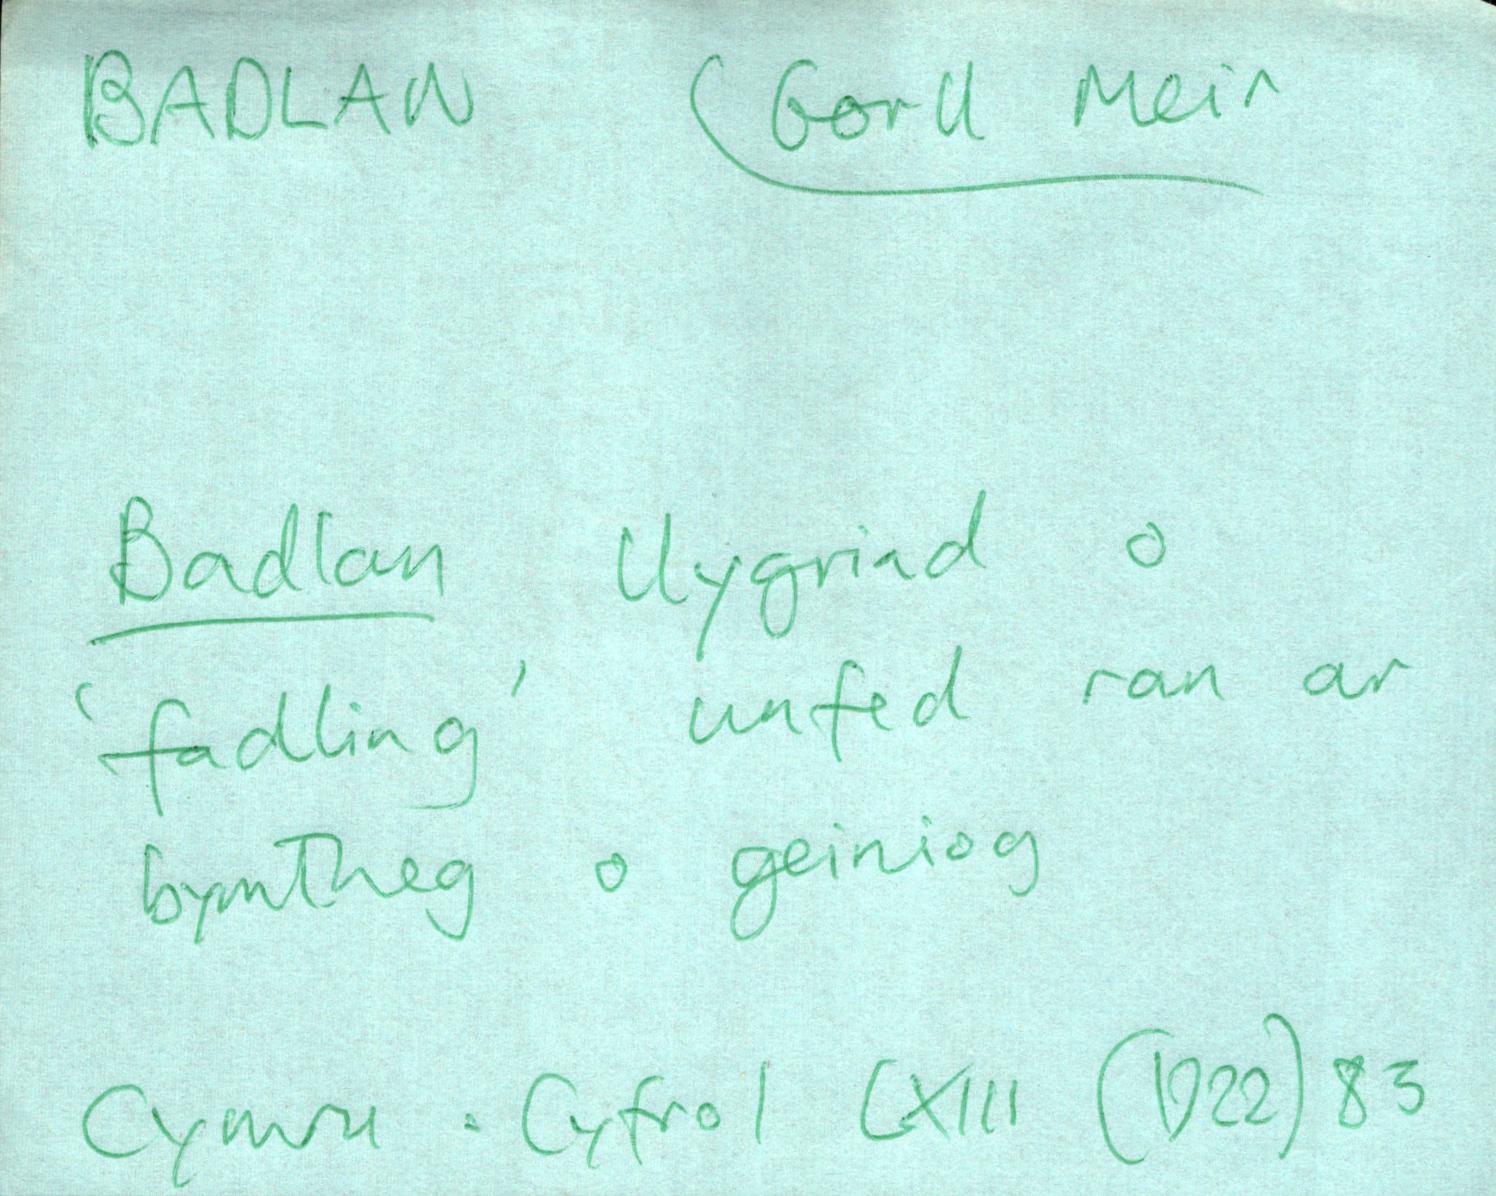 BADLAN (Gorll Meir
Badlan llygriad o
'fadling' unfed ran ar
bymtheg o geiniog
Cymru. Cyfrol LXIII (1922) 83